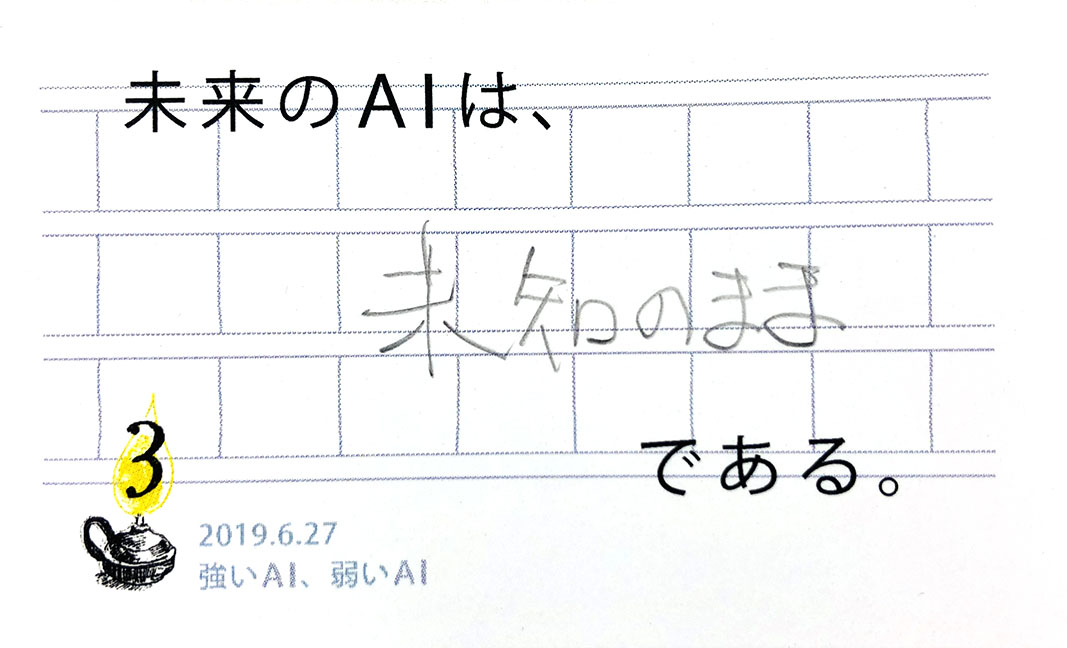 未来のAIは、
未知のまま
である。
3
2019.6.27
強いAI、弱いAI